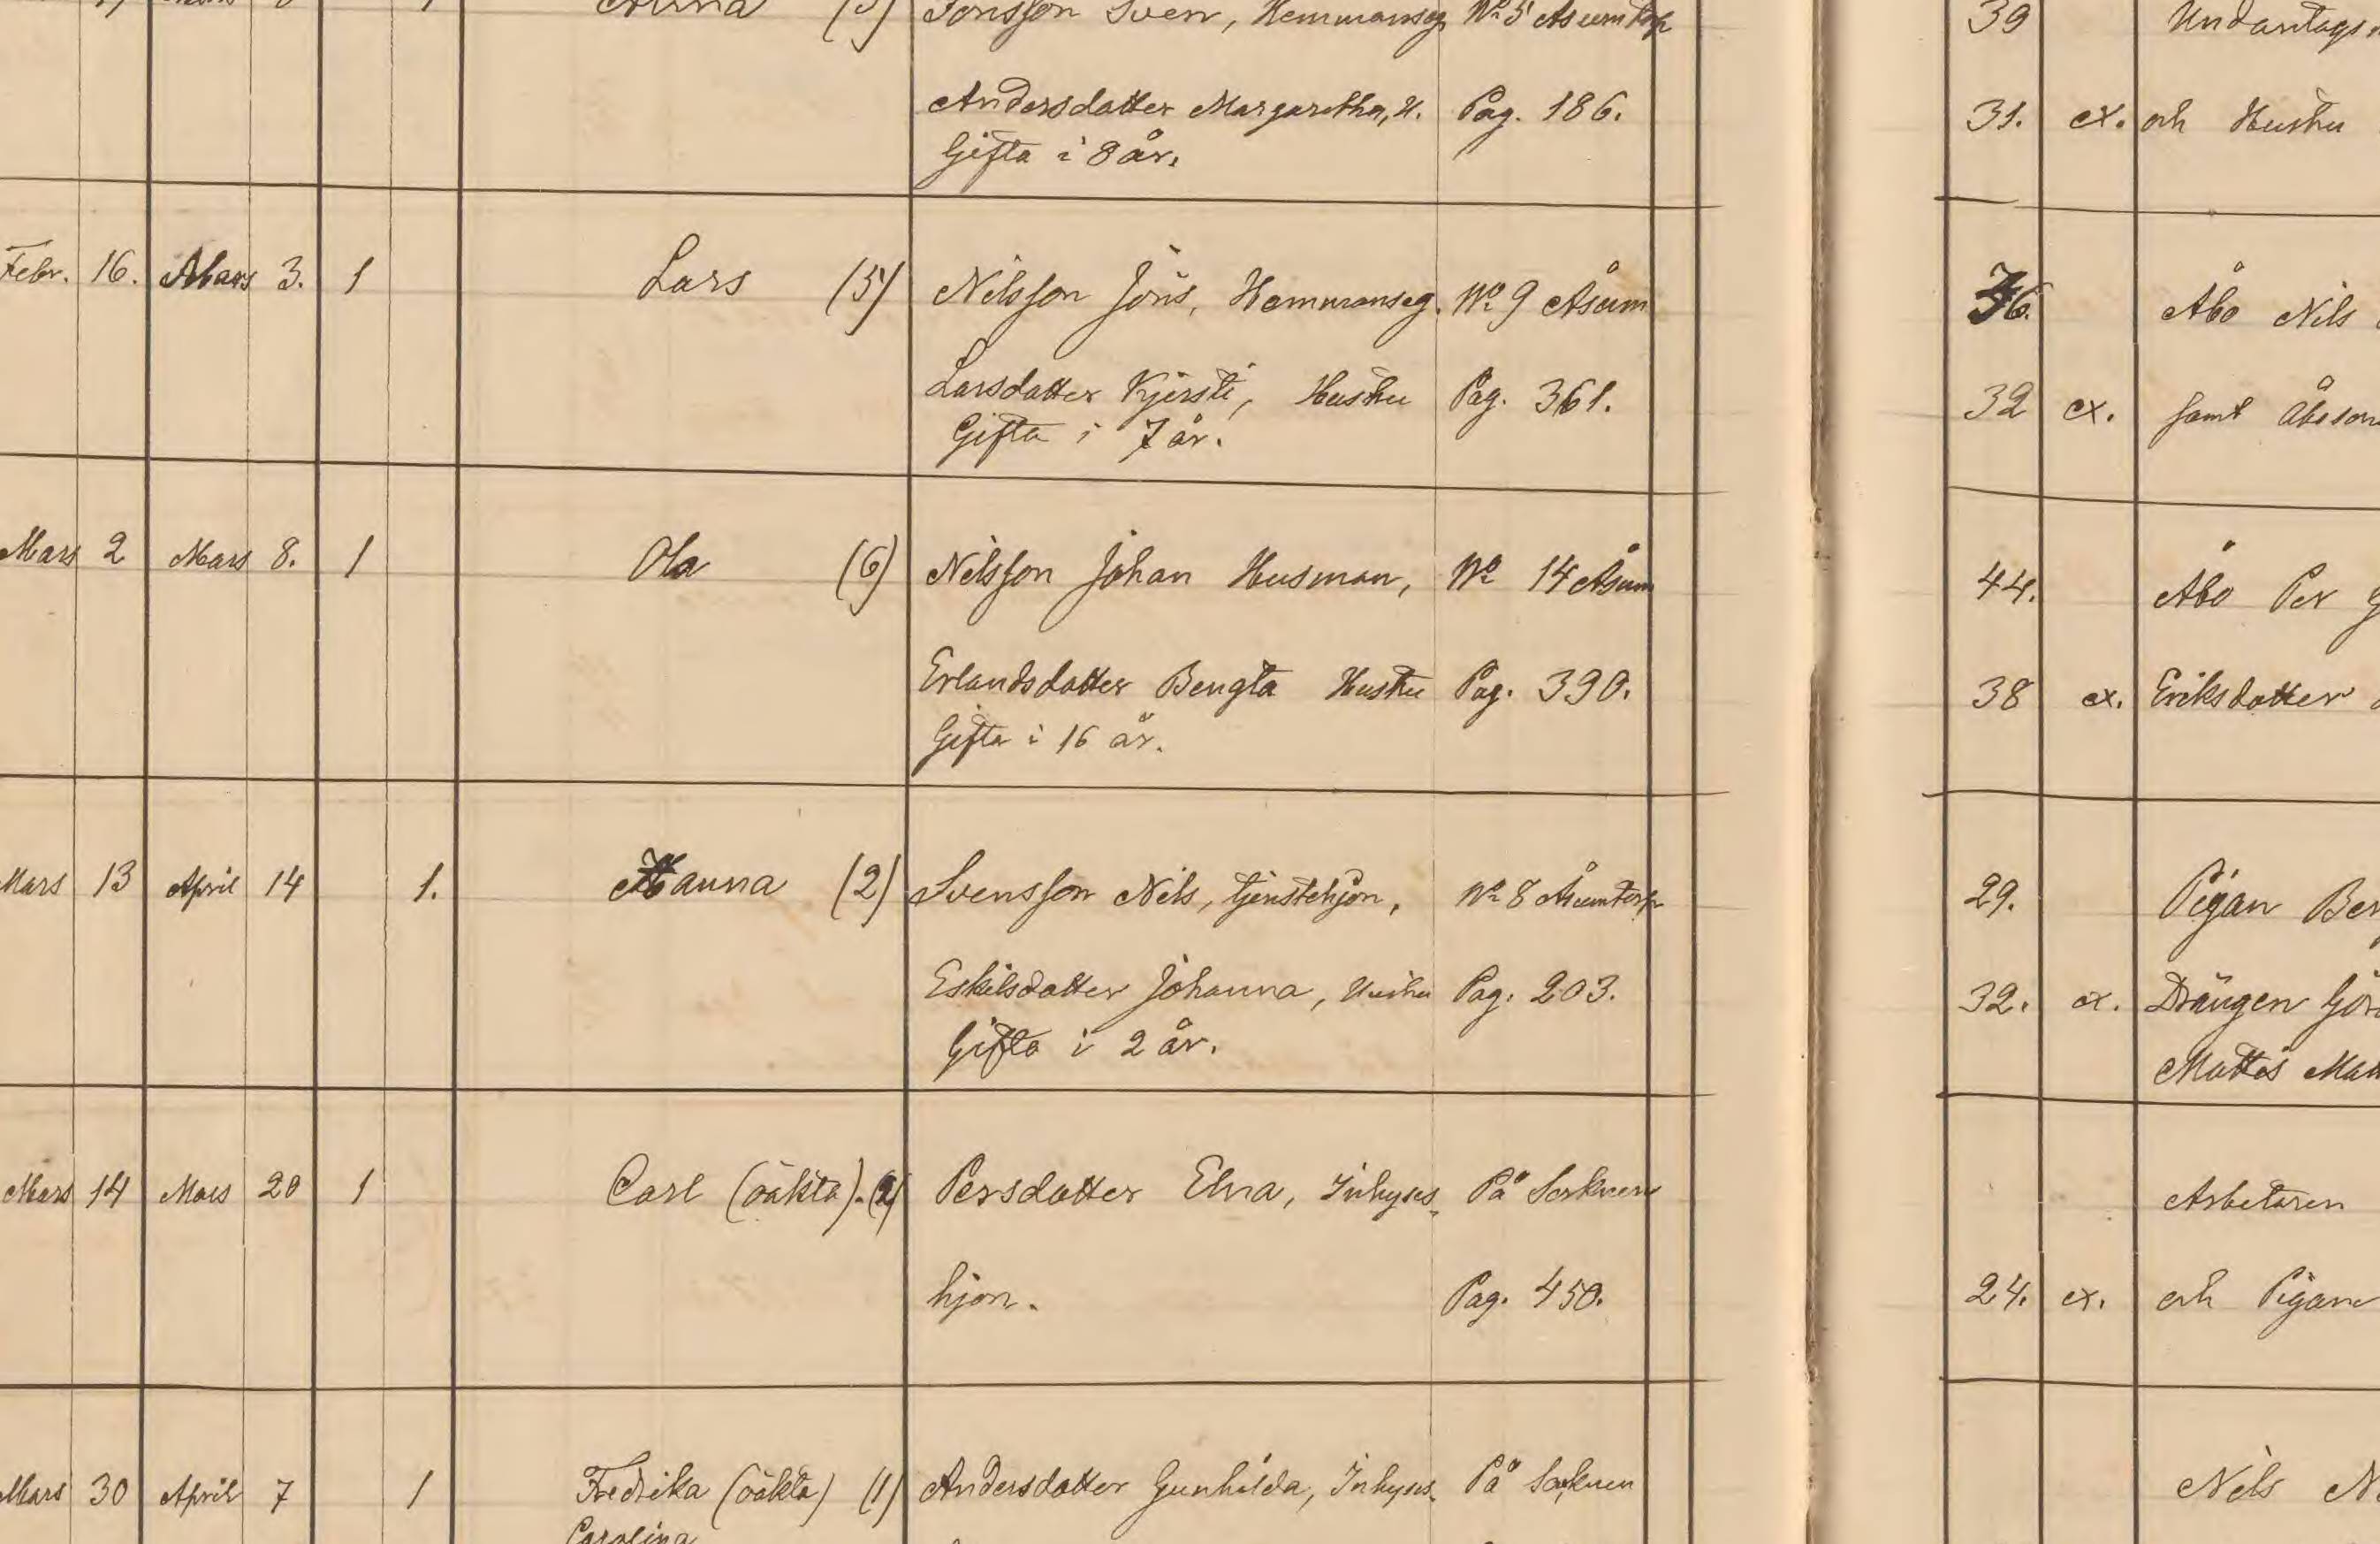 Anna Jönsson Sven, Hemmanseg. No 5 Åsumtorp 39 Undantags
Andersdatter Margaretha, H. Pag. 186. 31. ex. och Hustru
Gifta i 8 år.
Febr. 16. Mars 3. 1 Lars (5) Nilsson Jöns, Hemmanseg. No 9 Åsum 36. Åbo Nils
Larsdatter Kjersti, Hustru Pag. 361. 32 ex. samt Åboson
Gifta i 7 år.
Mars 2 Mars 8. 1 Ola (6) Nilsson Johan Husman, No 14 Åsum 44. Åbo Per
Erlandsdatter Bengta Hustru Pag. 390. 38 ex. Eriksdatter
Gifta i 16 år.
Mars 13 April 14 1. Hanna (2) Svensson Nils, tjenstehjon, No 8 Åsumtorp 29. Pigan Ben
Eskilsdatter Johanna, Hustru Pag. 203. 32. ex. Drängen Gör
Gifta i 2 år. Mattis
Mars 14 Mars 20 1 Carl (oäkta). (2) Persdatter Elna, Inhyses- På Socknen Arbetaren
hjon. Pag. 450. 24. ex. och Pigan
Mars 30 April 7 1 Fredrika (oäkta) (1) Andersdatter Gunhilda, Inhyses- På Socknen Nils N
Carolina